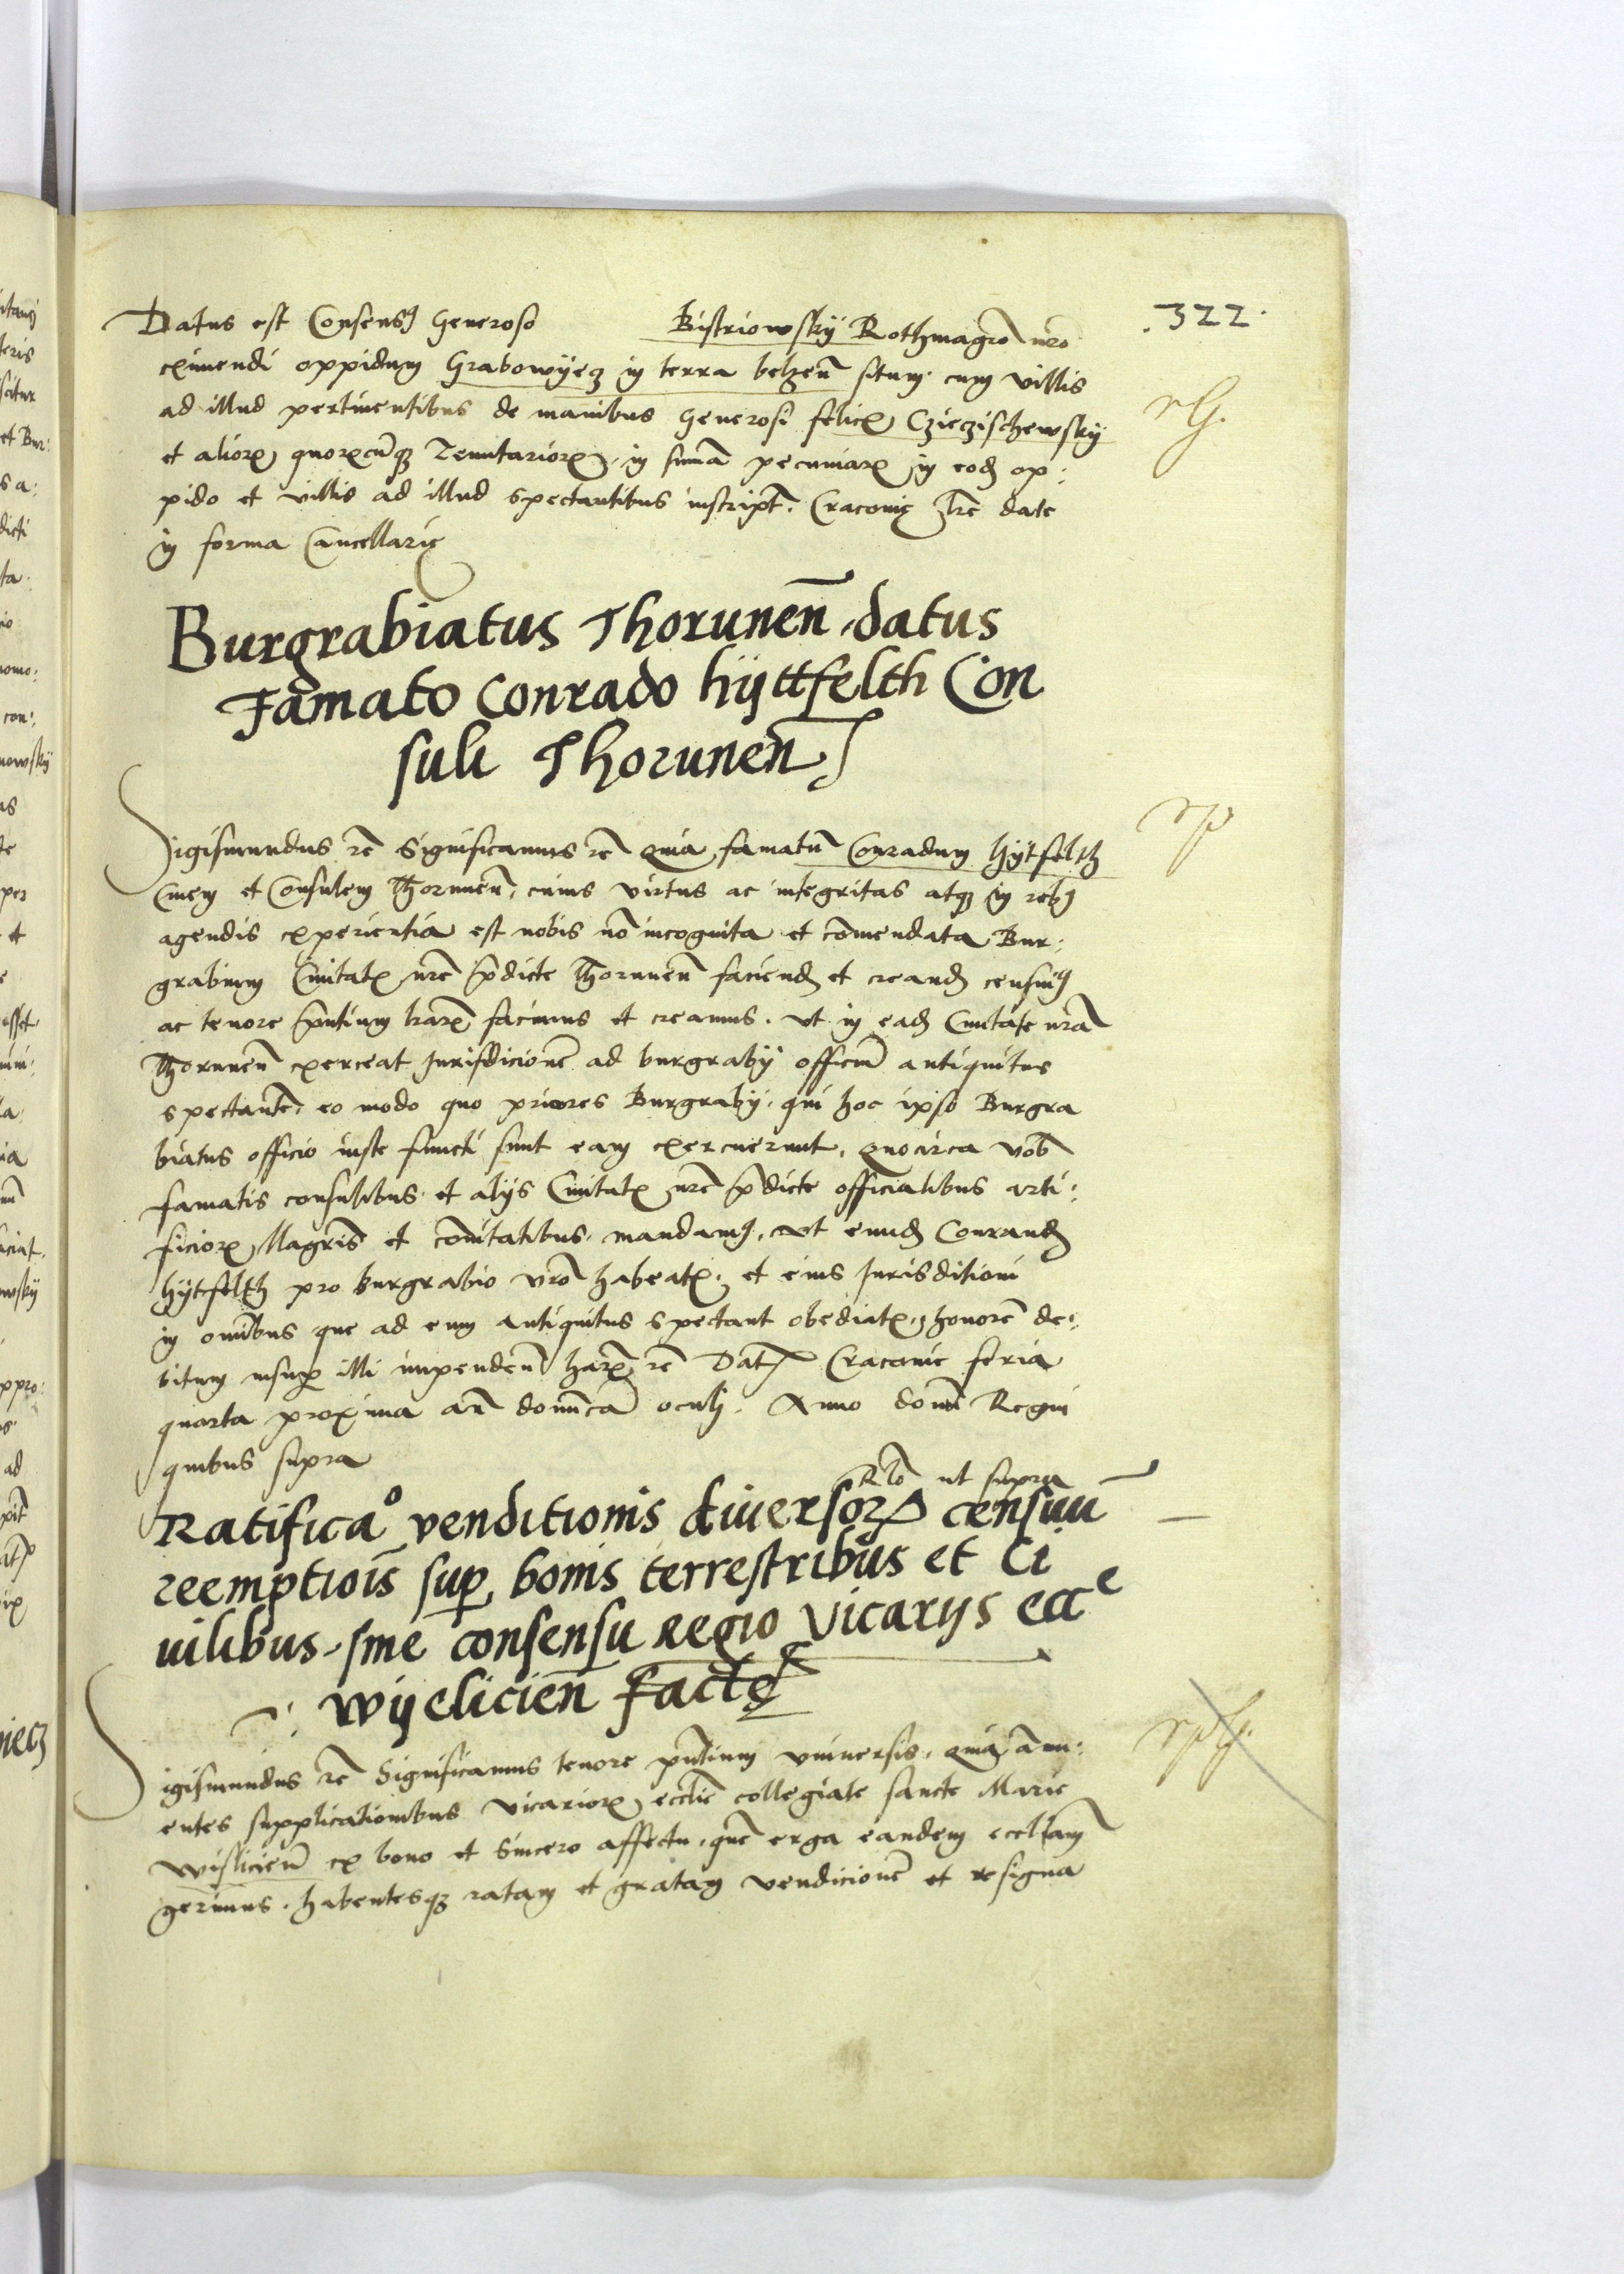 .322.
Datus est Consensꝰ Generoso Bistriowskÿ Rothmagrō nrō
eximendi oppidum Grabowÿecz in terra belzen̄ situm cum villis
ad illud pertinentibus de manibus Generosi felicꝭ Cziecziſchewskÿ
et alioꝝ quoꝝcūqꝫ Tenutarioꝝ, in summa pecuniaꝝ in eodē op:
pido et villis ad illud spectantibus inscript. Cracovię lr̄e date
in forma Cancellarię
Burgrabiatus Thorunen̄ datus
Famato Conrado hÿttfelth Con
suli Thorunen̄
Sigismundus rē Significamus rē quia famatū Conradum Hÿtfelth
Civem et Consulem Thorunen̄, cuius virtus ac integritas atqꝫ in rebꝰ
agendis experientia est nobis nō incognita et cōmendata Bur:
grabium Civitatꝭ nrē p̄dicte Thorunen̄ faciendū et creandū censuimꝰ
ac tenore p̄ntium lraꝝ facimus et creamus. Ut in eadē Civitate nrā
Thorunen̄ exerceat Jurisdicionē ad burgrabÿ officiū antiquitus
spectantē, eo modo quo priores Burgrabÿ, qui hoc ipso Burgra
biatus officio iuste functi sunt eam exercuerunt. Quocirca vob̄
famatis consulibus et alÿs Civitatꝭ nrē p̄dicte officialibus arti:
ficioꝝ Magris̄ et cōmitatibus, mandamꝰ, ut eundē Conradū
hÿtfelth pro burgrabio vrō habeatꝭ, et eius Jurisditioni
in omībus que ad eum antiquitus spectant obediatꝭ, honorē de:
bitum insuꝑ illi impenden̄ haꝝ rē Dat Cracovie feria
quarta proxima an̄ domīcā oculi. Anno domī Regni
quibus supra
Rlō ut supra
Ratificaº venditionis diuersoꝝ censuū
reemptiōis suꝑ bonis terrestribus et Ci
uilibus sine consensu Regio Vicarÿs eccᵉ
Wÿelicien̄ Factę
Sigismundus rē Significamus tenore p̄ntium universis, quia ānu:
entes supplicationibus vicarioꝝ ecclīe collegiate sancte Marie
Wislicien̄ ex bono et sincero affectu, quē erga eandem eccliam
gerimus, habentesqꝫ ratam et gratam vendicionē et resigna